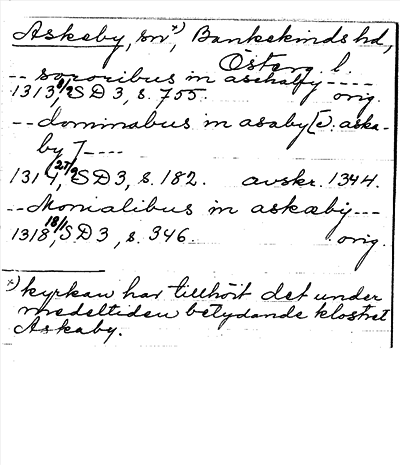 Askeby, sn*), Bankekinds hd,
Österg. l.
-- sororibus in aschalfy ----
1313 6/2 SD 3, s. 755. orig.
-- dominabus in asaby [ɔ: aska-
by] ----
1314 (27/2, SD 3, s. 182. avskr. 1344.
-- Monialibus in askæby ---
1318 18/1, SD 3, s. 346. orig.
*) kyrkan har tillhört det under
medeltiden betydande klostret
Askaby.